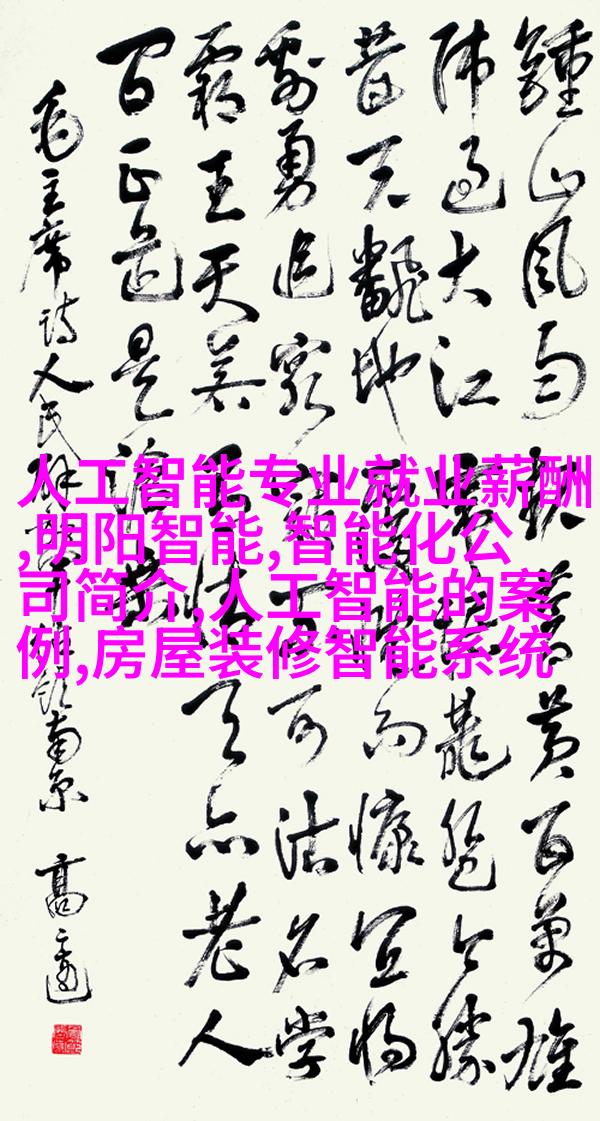 人工智能专业就业薪酬
,明阳智能,智能化公
司简介,人工智能的案
例,房屋装修智能系统
鍾山風雨起蒼黃百萬雄
師過大江虎踞龍盤今勝
昔天翻地覆慨而慷宜將
剩勇追窮寇不可沽名學
霸王天若有情天亦老人
間正道是滄桑
毛主席詩人民解放軍佔領南京 高